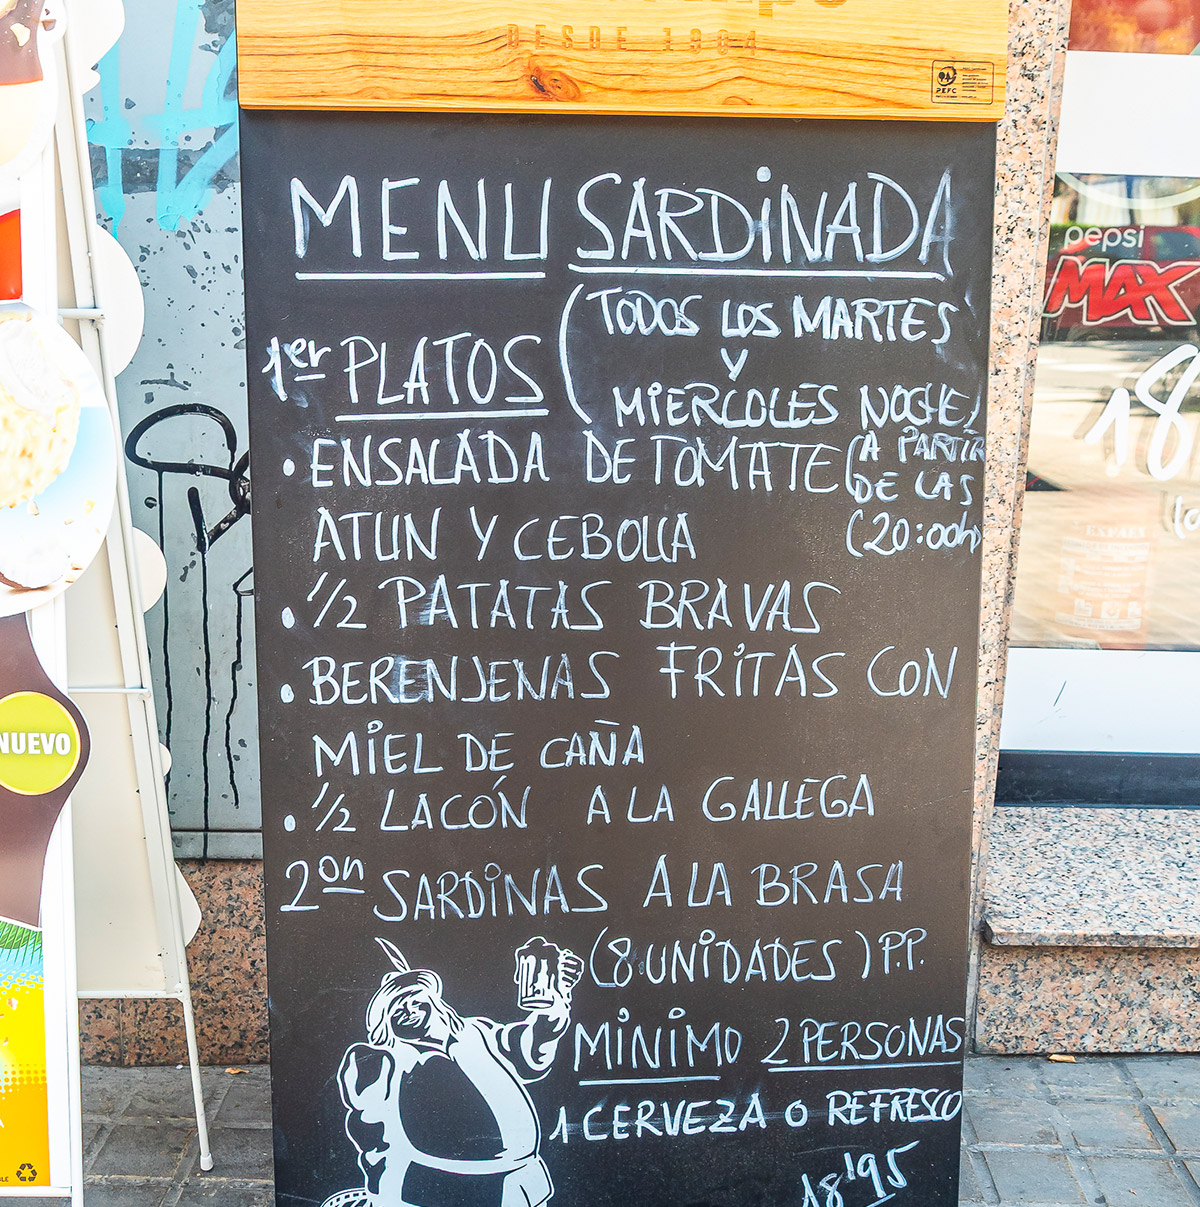 DESDE 1964
PEFC
MENU SARDINADA
(TODOS LOS MARTES
Y
MIERCOLES NOCHE)
1er PLATOS
• ENSALADA DE TOMATE
(A PARTIR
DE LAS
(20:00h)
ATUN Y CEBOLLA
• 1/2 PATATAS BRAVAS
• BERENJENAS FRITAS CON
MIEL DE CAÑA
• 1/2 LACÓN A LA GALLEGA
2on SARDINAS A LA BRASA
(8 UNIDADES) P.P.
MINIMO 2 PERSONAS
1 CERVEZA O REFRESCO
18'95
NUEVO
pepsi
MAX
18